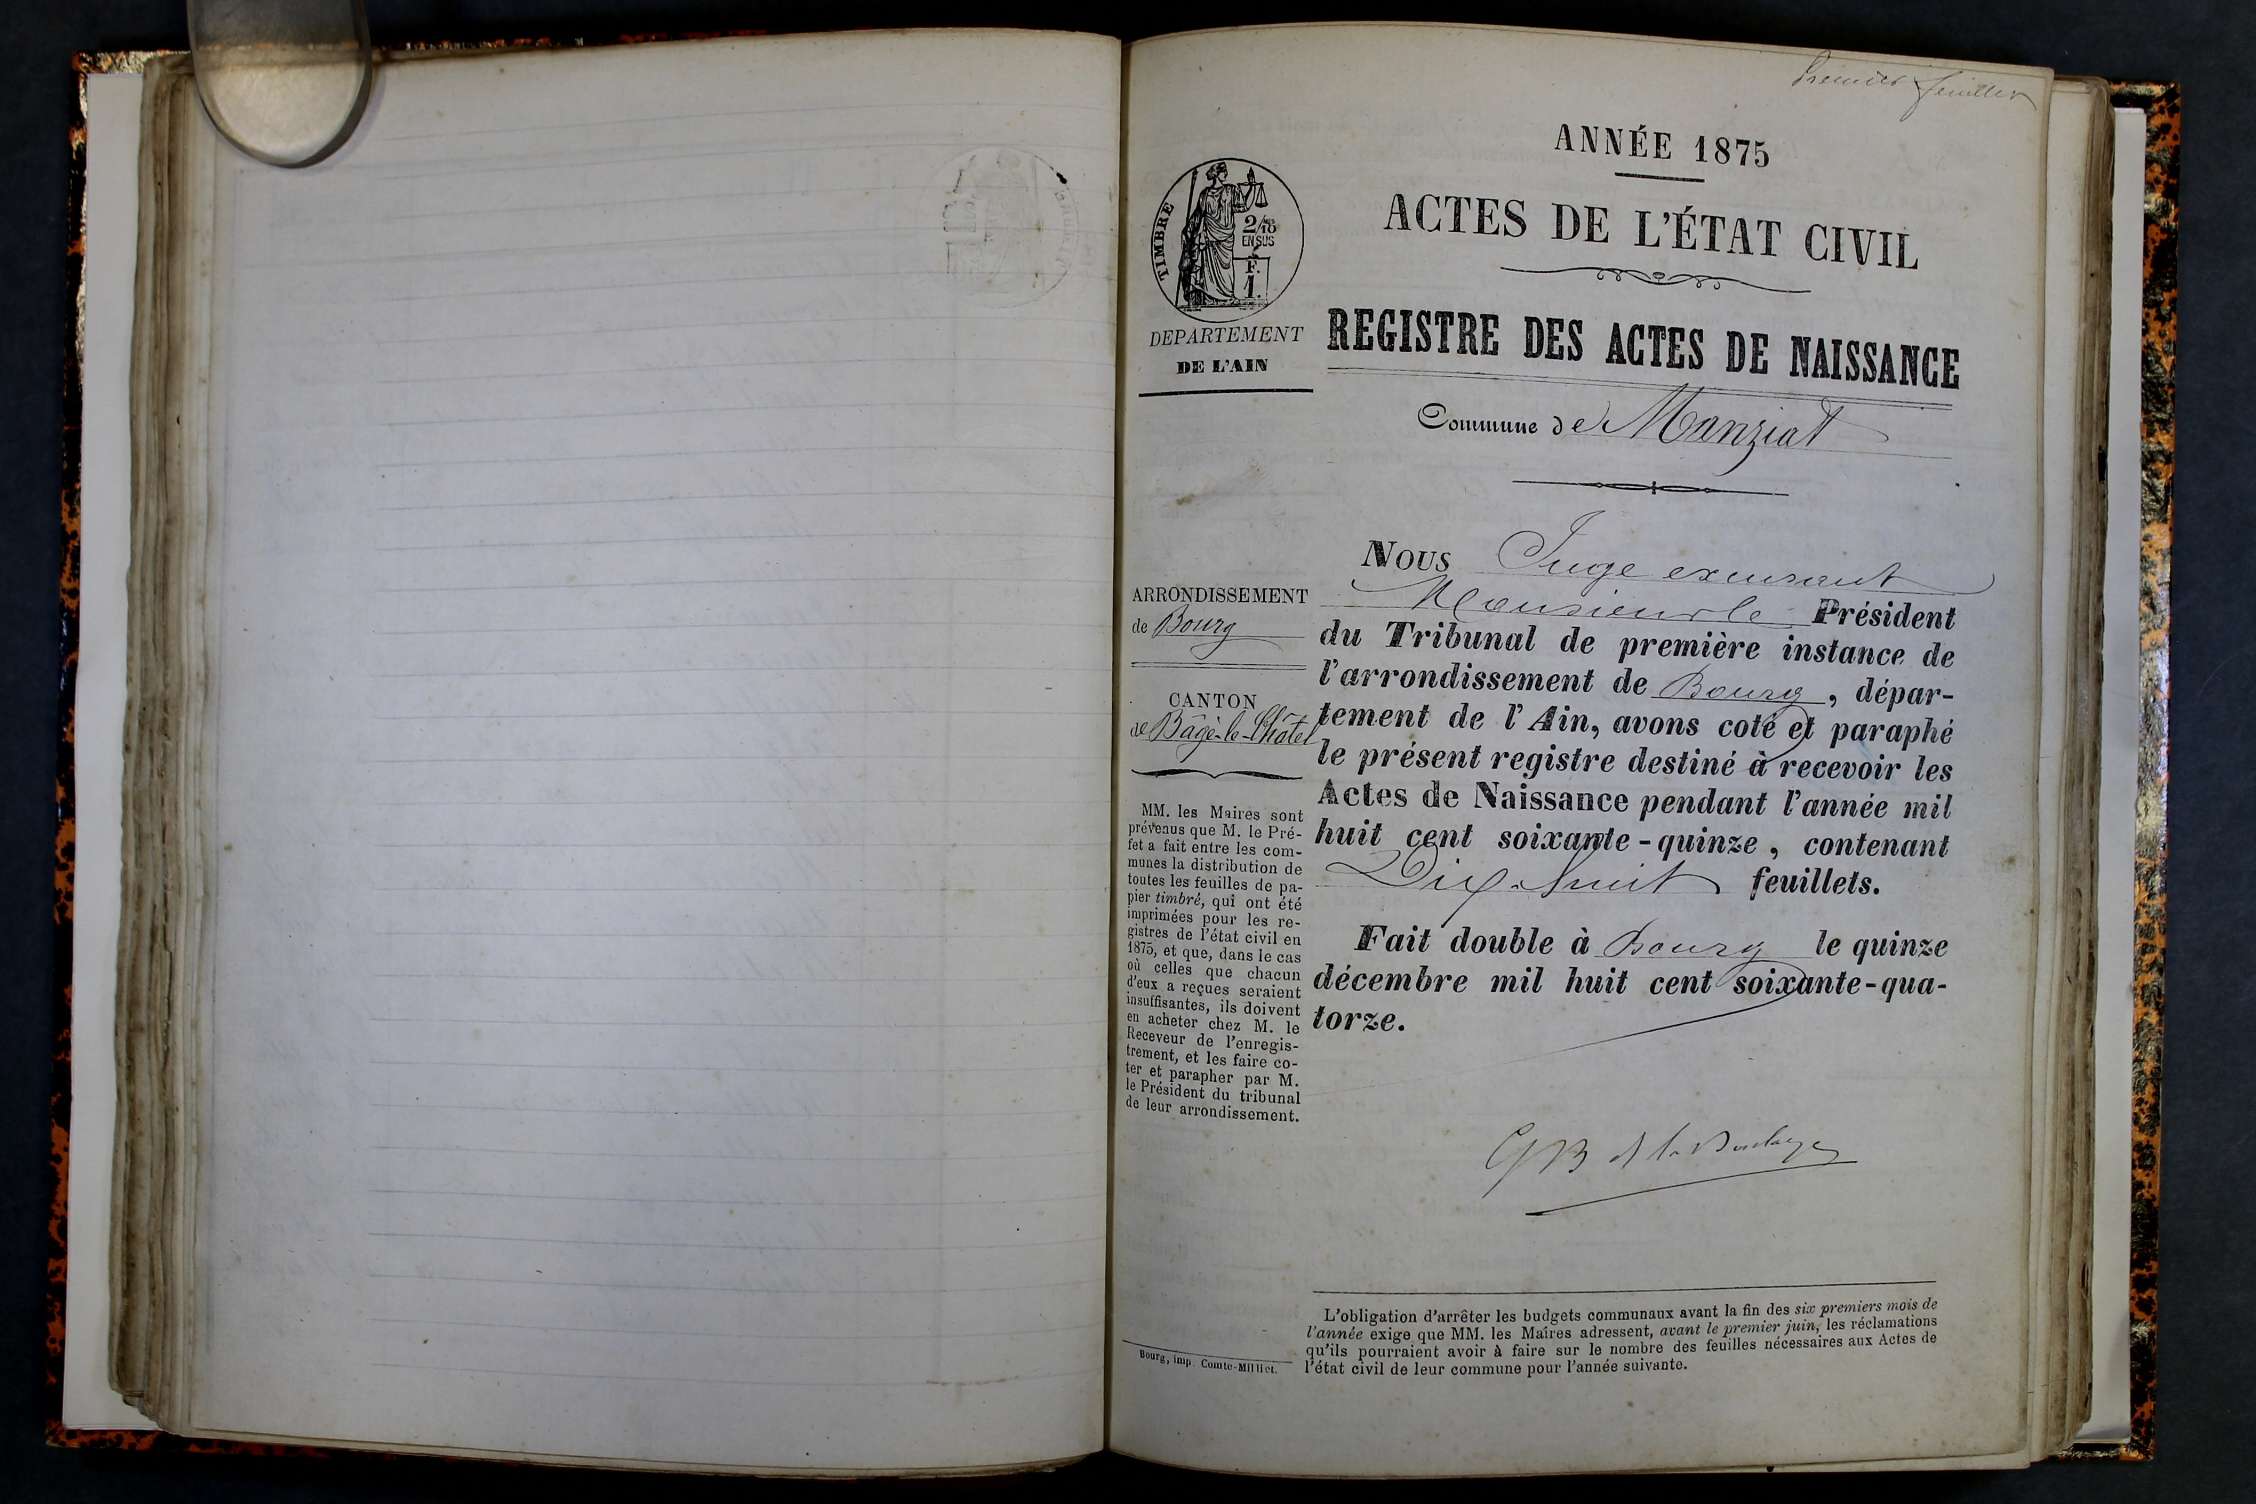 Premier feuillet
ANNÉE 1875
ACTES DE L'ÉTAT CIVIL
REGISTRE DES ACTES DE NAISSANCE
Commune de Manziat
TIMBRE
2/10
EN SUS
F.
1.
DEPARTEMENT
DE L'AIN
ARRONDISSEMENT
de Bourg
CANTON
de Bâgé-le-Châtel
MM. les Maires sont
prévenus que M. le Pré-
fet a fait entre les com-
munes la distribution de
toutes les feuilles de pa-
pier timbré, qui ont été
imprimées pour les re-
gistres de l'état civil en
1875, et que, dans le cas
où celles que chacun
d'eux a reçues seraient
insuffisantes, ils doivent
en acheter chez M. le
Receveur de l'enregis-
trement, et les faire co-
ter et parapher par M.
le Président du tribunal
de leur arrondissement.
Bourg, imp. Comte-Milliet.
NOUS Juge excusant
Monsieur le Président
du Tribunal de première instance de
l'arrondissement de Bourg, dépar-
tement de l'Ain, avons coté et paraphé
le présent registre destiné à recevoir les
Actes de Naissance pendant l'année mil
huit cent soixante-quinze, contenant
Dix-huit feuillets.
Fait double à Bourg le quinze
décembre mil huit cent soixante-qua-
torze.
L'obligation d'arrêter les budgets communaux avant la fin des six premiers mois de
l'année exige que MM. les Maires adressent, avant le premier juin, les réclamations
qu'ils pourraient avoir à faire sur le nombre des feuilles nécessaires aux Actes de
l'état civil de leur commune pour l'année suivante.